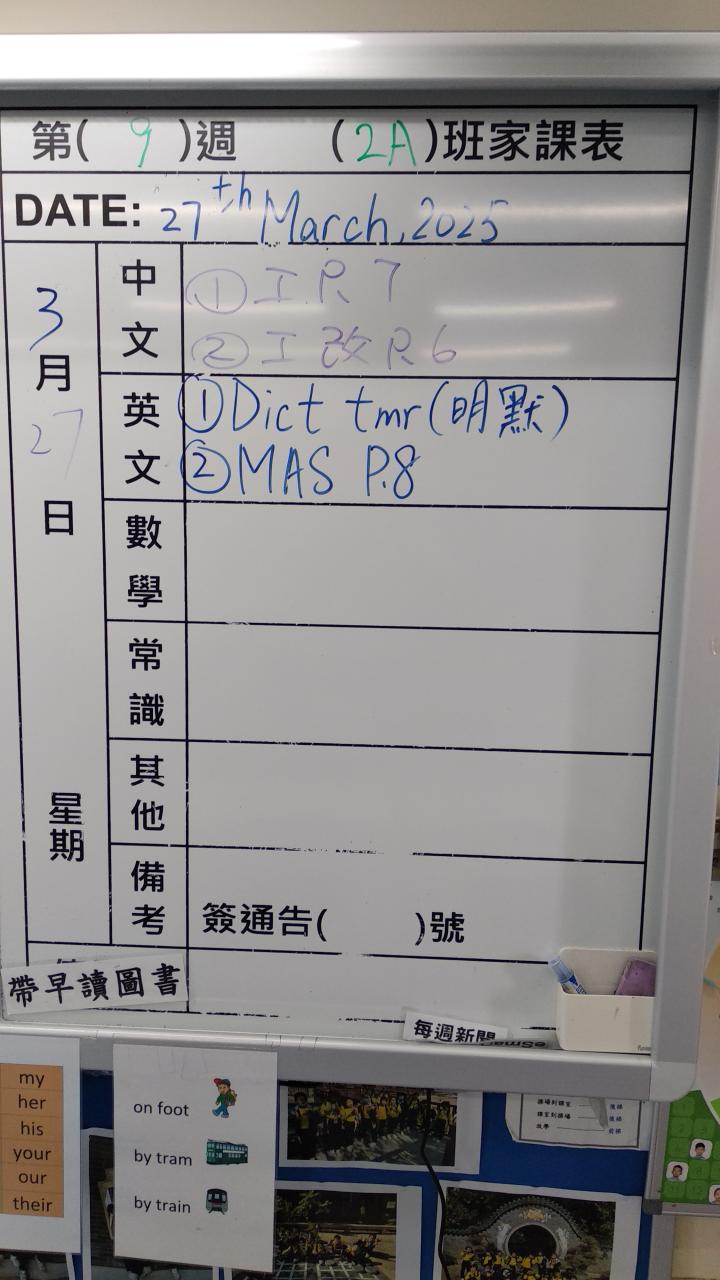 第( 9 )週 (2A)班家課表
DATE: 27th March, 2025
3月27日
星期
中文
① 工 P.7
② 工 改 P.6
英文
① Dict tmr (明默)
② MAS P.8
數學
常識
其他
備考
簽通告( )號
帶早讀圖書
每週新聞
my
her
his
your
our
their
on foot
by tram
by train